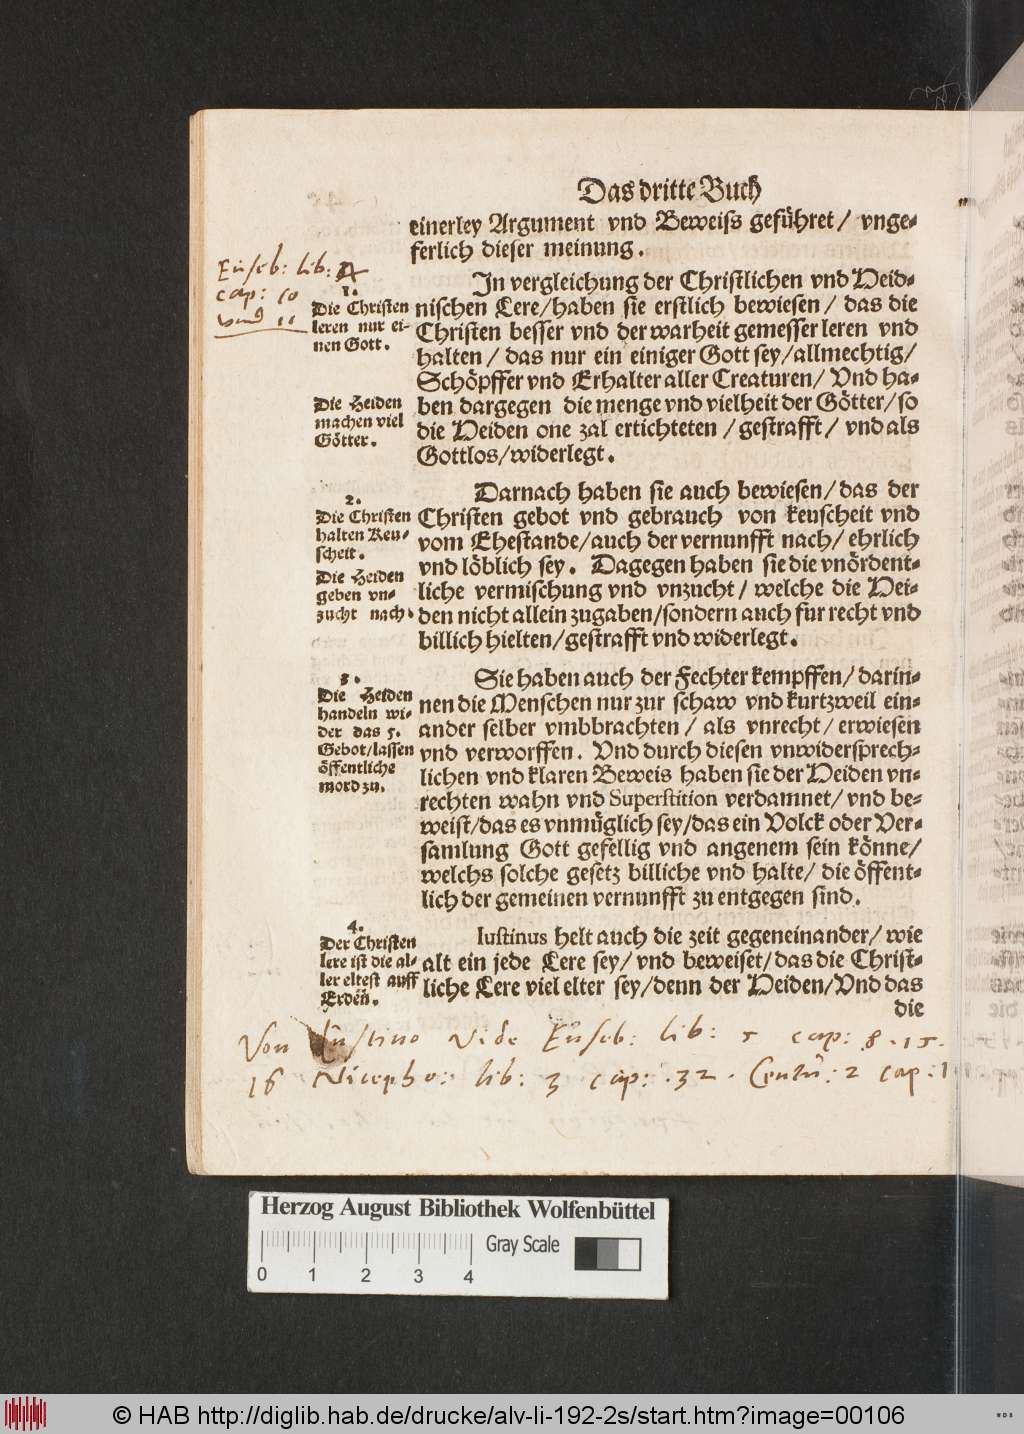 Das dritte Buch
einerley Argument vnd Beweiſs geführet/ vnge-
ferlich dieser meinung.
Euseb: lib: 4
cap: 10
vnd 11
1.
Die Christen
leren nur ei-
nen Gott.
Die Heiden
machen viel
Götter.
In vergleichung der Christlichen vnd Heid-
nischen Lere/haben sie erstlich bewiesen/ das die
Christen besser vnd der warheit gemesser leren vnd
halten/ das nur ein einiger Gott sey/allmechtig/
Schöpffer vnd Erhalter aller Creaturen/ Vnd ha-
ben dargegen die menge vnd vielheit der Götter/so
die Heiden one zal ertichteten/gestrafft/ vnd als
Gottlos/widerlegt.
2.
Die Christen
halten Keu-
scheit.
Die Heiden
geben vn-
zucht nach.
Darnach haben sie auch bewiesen/das der
Christen gebot vnd gebrauch von keuscheit vnd
vom Ehestande/auch der vernunfft nach/ ehrlich
vnd löblich sey. Dagegen haben sie die vnördent-
liche vermischung vnd vnzucht/ welche die Hei-
den nicht allein zugaben/sondern auch fur recht vnd
billich hielten/gestrafft vnd widerlegt.
3.
Die Heiden
handeln wi-
der das 5.
Gebot/lassen
öffentliche
mord zu.
Sie haben auch der Fechter kempffen/ darin-
nen die Menschen nur zur schaw vnd kurtzweil ein-
ander selber vmbbrachten/ als vnrecht/ erwiesen
vnd verworffen. Vnd durch diesen vnwidersprech-
lichen vnd klaren Beweis haben sie der Heiden vn-
rechten wahn vnd Superstition verdamnet/ vnd be-
weist/das es vnmüglich sey/das ein Volck oder Ver-
samlung Gott gefellig vnd angenem sein könne/
welchs solche gesetz billiche vnd halte/ die öffent-
lich der gemeinen vernunfft zu entgegen sind.
4.
Der Christen
lere ist die al-
ler eltest auff
Erden.
Iustinus helt auch die zeit gegeneinander/ wie
alt ein jede Lere sey/ vnd beweiset/das die Christ-
liche Lere viel elter sey/denn der Heiden/Vnd das
die
Von Iustino Vide Euseb: lib: 5 cap: 8 . 15.
16 Nicepho: lib: 3 cap: 32 . Centu: 2 cap. 1
Herzog August Bibliothek Wolfenbüttel
Gray Scale
0 1 2 3 4
© HAB http://diglib.hab.de/drucke/alv-li-192-2s/start.htm?image=00106